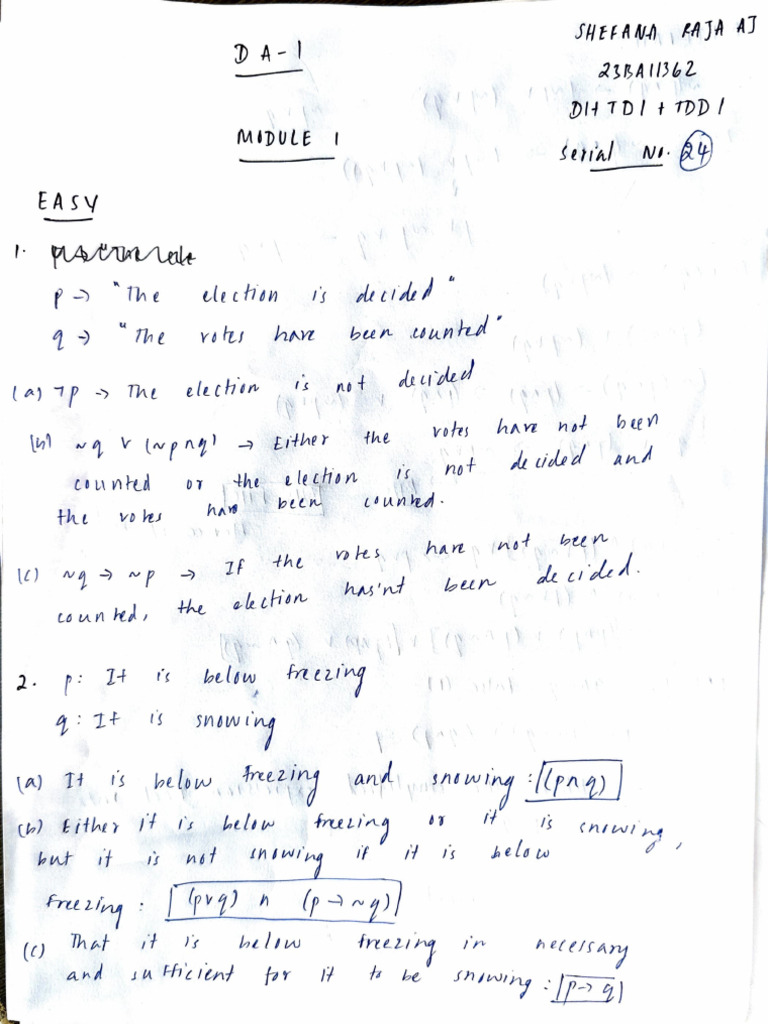 DA-1
SHEFANA RAJA AJ
23BAI1362
D1+TD1+TDD1
MODULE 1
Serial No. 24
EASY
1.
p → "The election is decided"
q → "The votes have been counted"
(a) ¬p → The election is not decided
(b) ~q ∨ (~p∧q) → Either the votes have not been
counted or the election is not decided and
the votes have been counted.
(c) ~q → ~p → If the votes have not been
counted, the election has'nt been decided.
2. p: It is below freezing
q: It is snowing
(a) It is below freezing and snowing : (p∧q)
(b) Either it is below freezing or it is snowing,
but it is not snowing if it is below
freezing : (p∨q) ∧ (p → ~q)
(c) That it is below freezing in necessary
and sufficient for it to be snowing : p → q